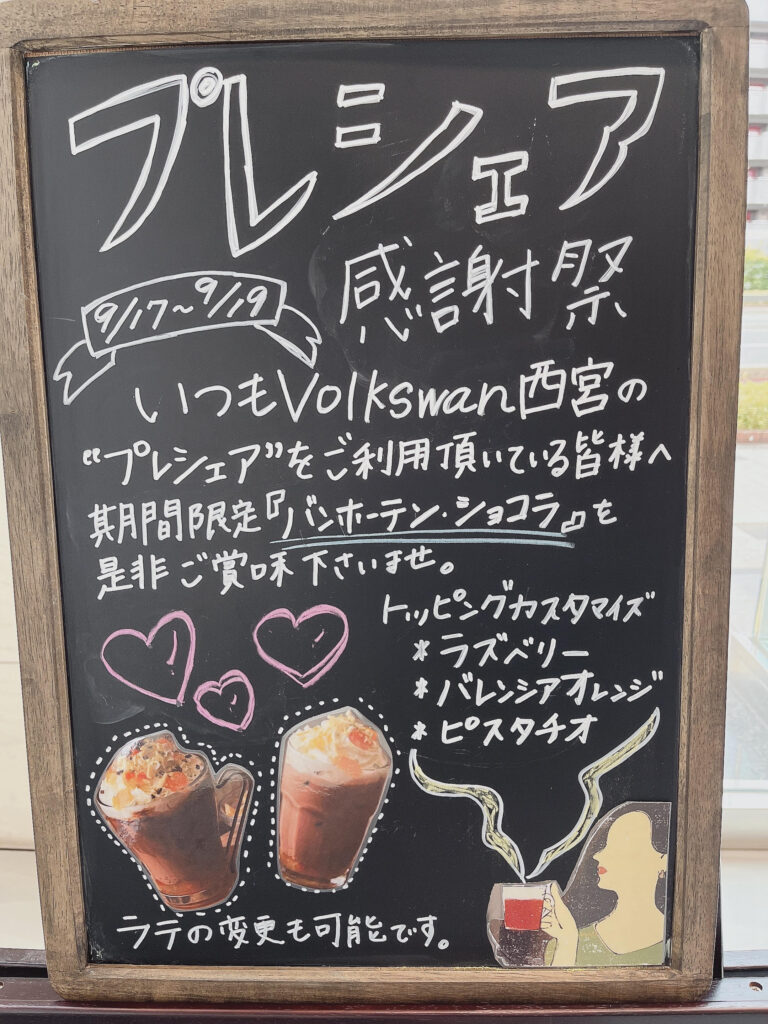 プレシェア
感謝祭
9/17~9/19
いつもVolkswan西宮の
“プレシェア”をご利用頂いている皆様へ
期間限定『バンホーテン・ショコラ』を
是非ご賞味下さいませ。
トッピングカスタマイズ
*ラズベリー
*バレンシアオレンジ
*ピスタチオ
ラテの変更も可能です。